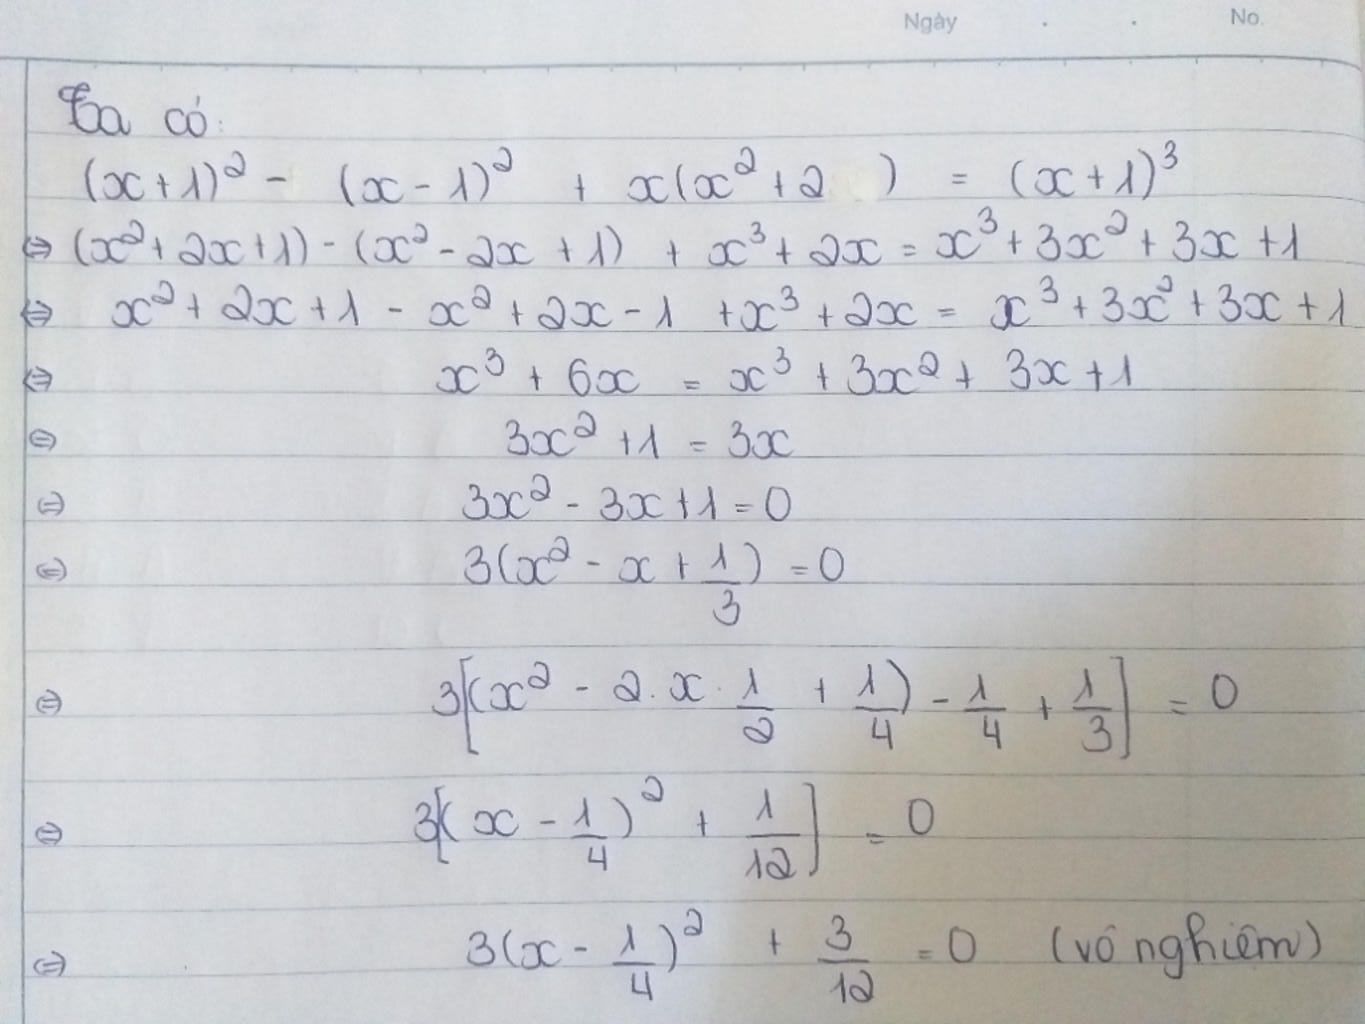 Ngày . . No.
Ta có:
(x+1)² - (x-1)² + x(x²+2 ) = (x+1)³
⇔ (x²+2x+1) - (x²-2x+1) + x³+2x = x³+3x²+3x+1
⇔ x²+2x+1 - x²+2x-1 +x³+2x = x³+3x²+3x+1
⇔ x³+6x = x³+3x²+3x+1
⇔ 3x²+1 = 3x
⇔ 3x²-3x+1=0
⇔ 3(x²-x+1/3)=0
⇔ 3[(x²-2.x.1/2+1/4)-1/4+1/3]=0
⇔ 3[(x-1/4)²+1/12]=0
⇔ 3(x-1/4)²+3/12=0 (vô nghiêm)